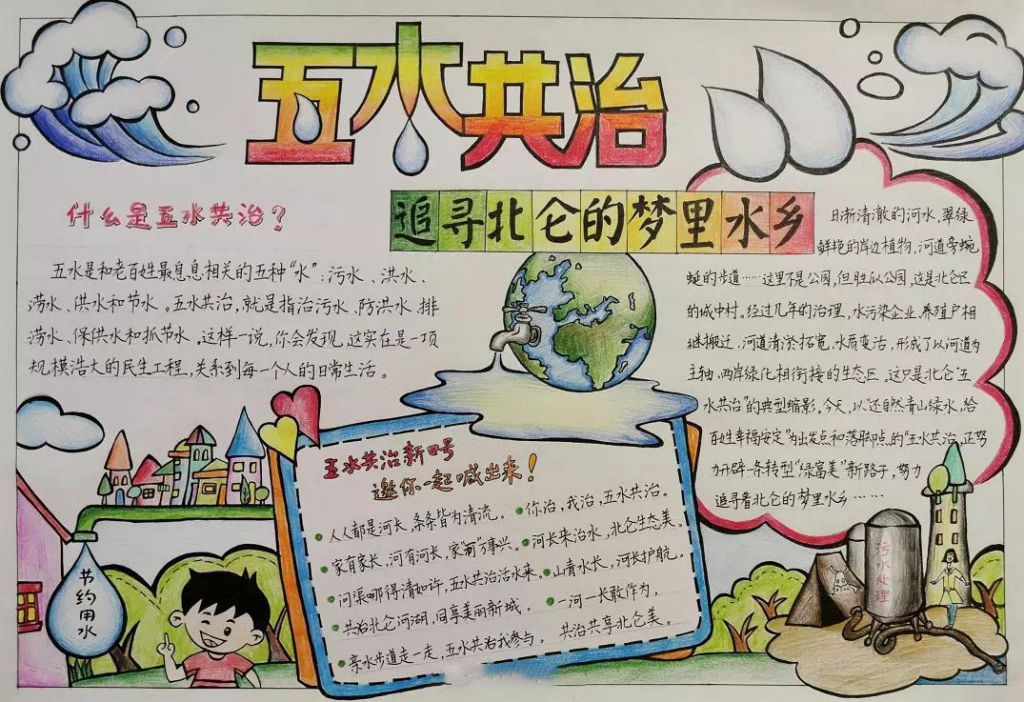 五水共治
追寻北仑的梦里水乡
什么是五水共治？
五水是和老百姓最息息相关的五种“水”：污水、洪水、
涝水、供水和节水。五水共治，就是指治污水、防洪水、排
涝水、保供水和抓节水。这样一说，你会发现，这实在是一项
规模浩大的民生工程，关系到每一个人的日常生活。
日渐清澈的河水，翠绿
鲜艳的岸边植物，河道旁蜿
蜒的步道……这里不是公园，但胜似公园，这是北仑区
的城中村。经过几年的治理，水污染企业、养殖户相
继搬迁，河道清淤拓宽，水质变治，形成了以河道为
主轴、两岸绿化相衔接的生态区。这只是北仑“五
水共治”的典型缩影。今天，以“还自然青山绿水，给
百姓幸福安定”为出发点和落脚点的“五水共治”，正努
力开辟一条转型“绿富美”新路子，努力
追寻着北仑的梦里水乡……
五水共治新口号
邀你一起喊出来！
人人都是河长，条条皆为清流。
你治，我治，五水共治。
家有家长，河有河长，家“河”万事兴。
河长来治水，北仑生态美。
问渠哪得清如许，五水共治活水来。
山青水长，河长护航。
共治北仑河湖，同享美丽新城。
一河一长敢作为，
共治共享北仑美。
亲水步道走一走，五水共治我参与。
节约用水
污水处理